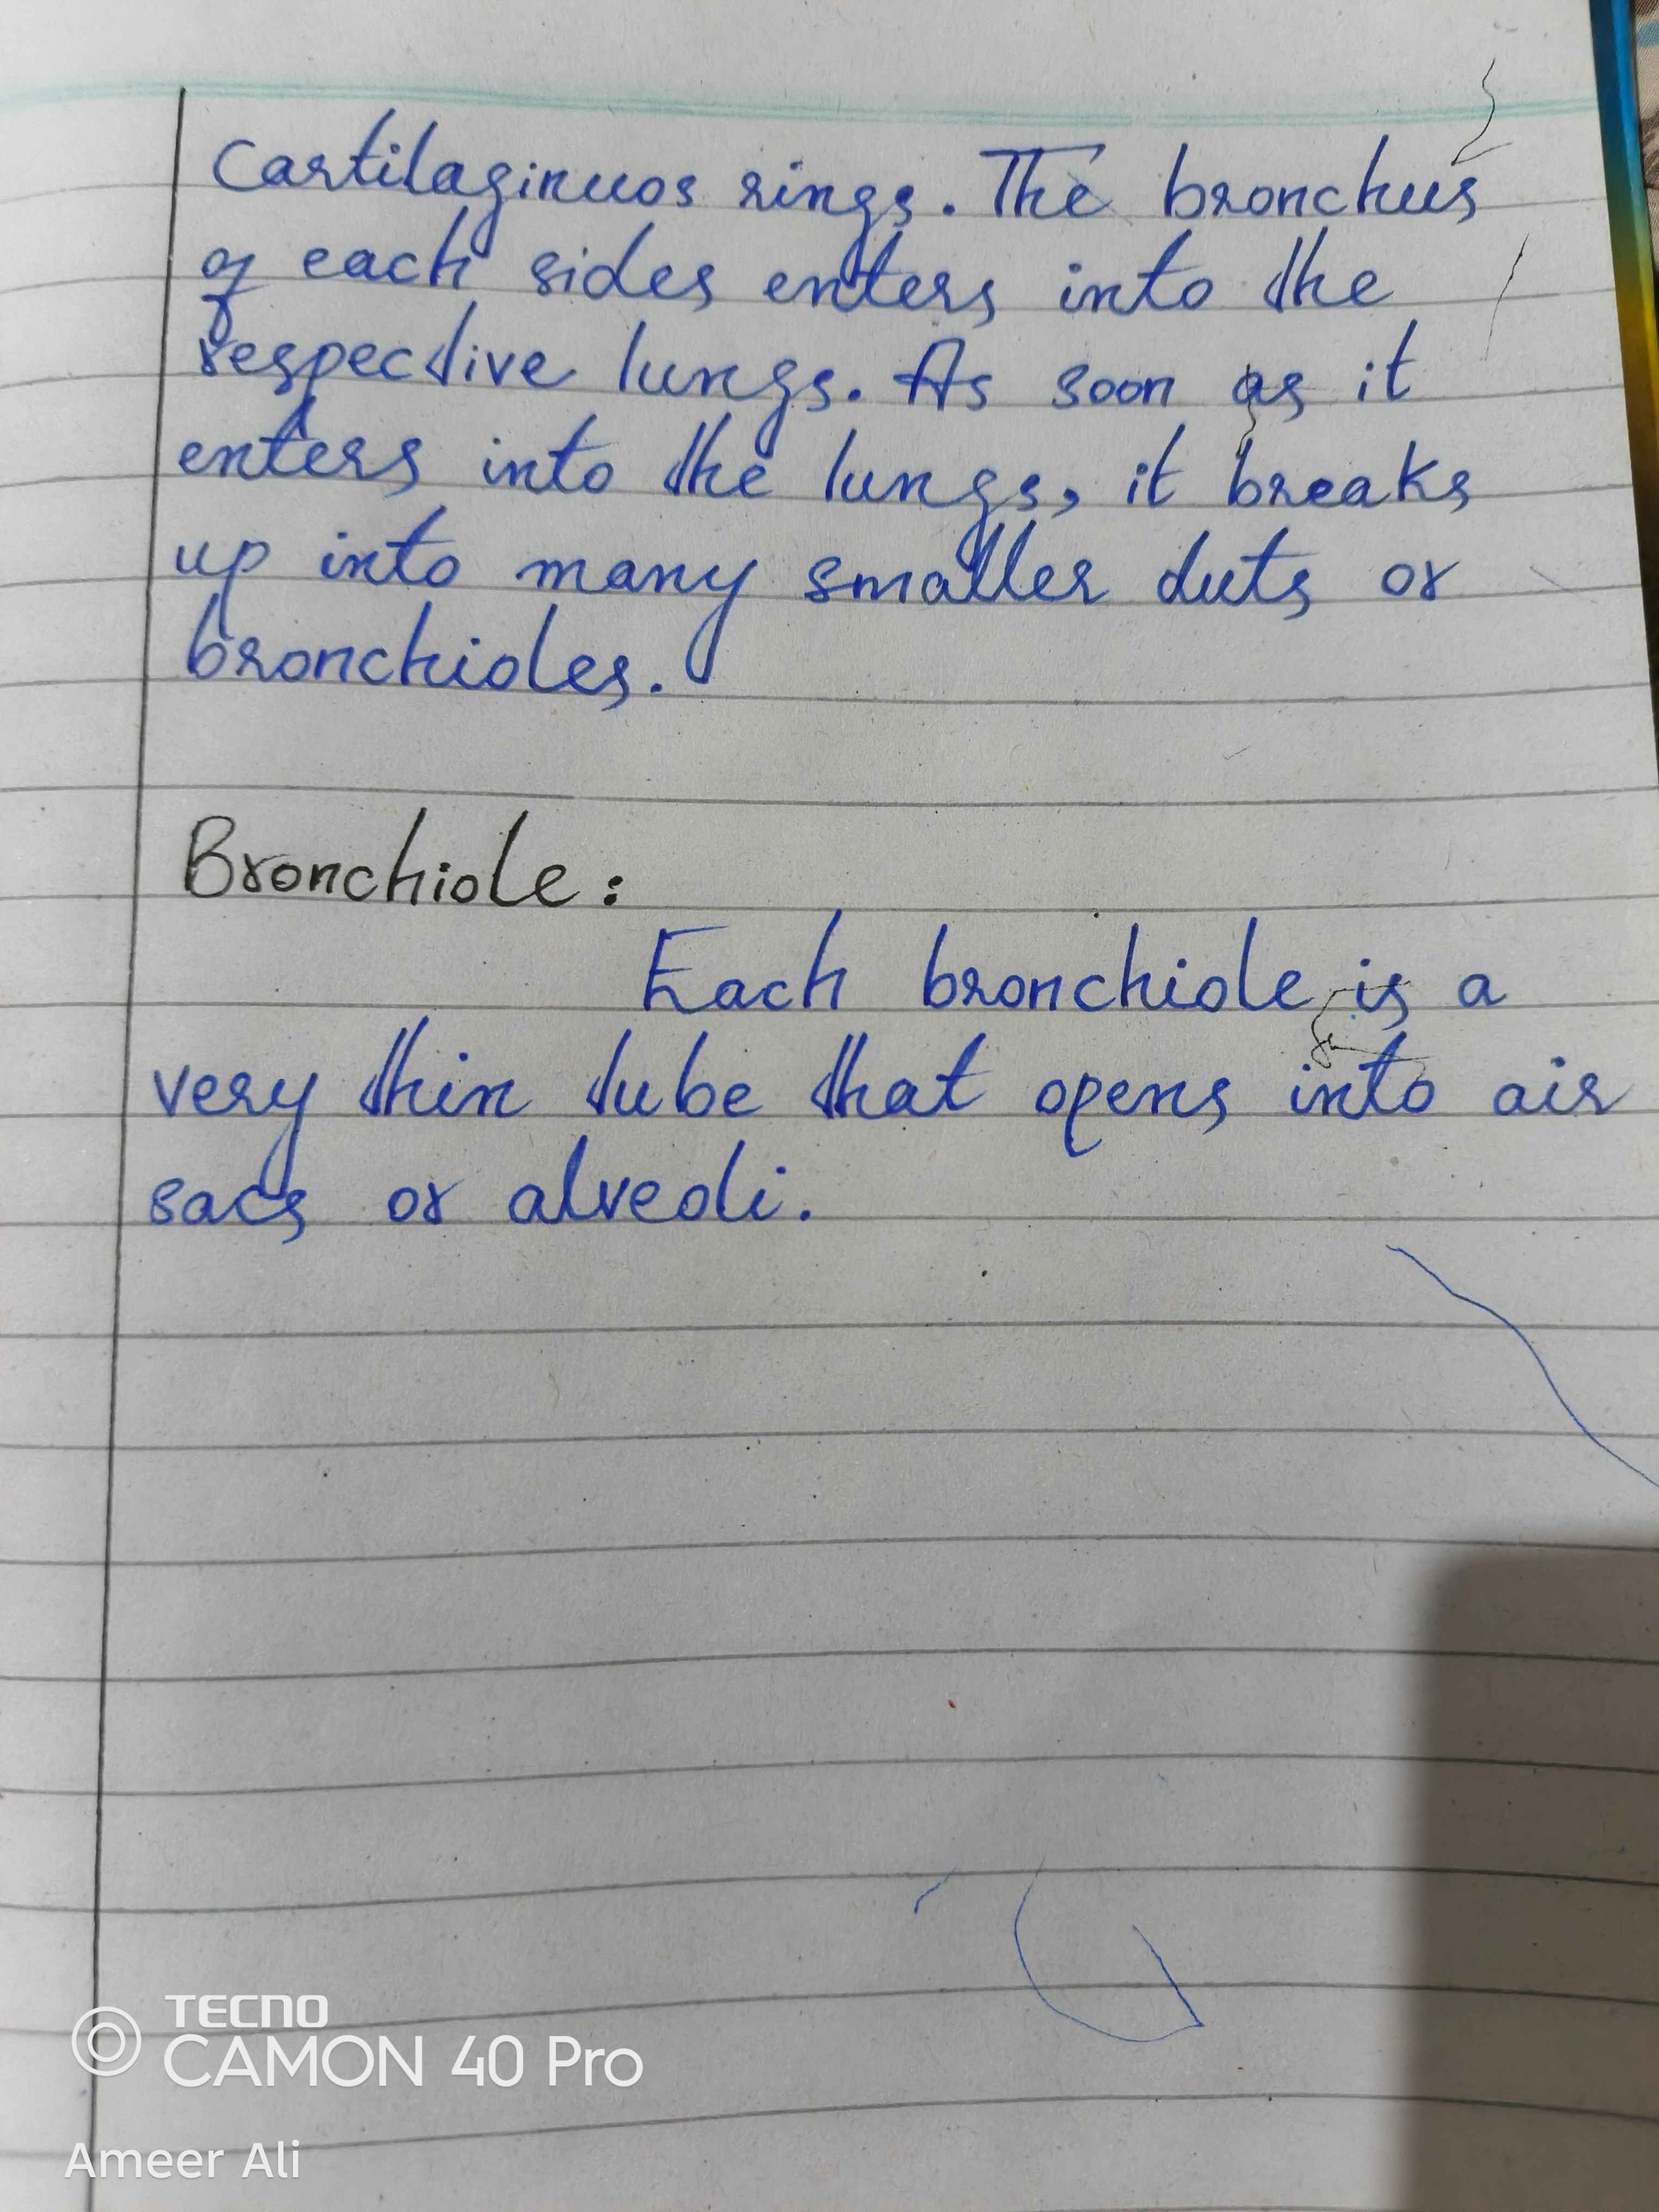 Cartilaginuos rings. The bronchus
of each sides enters into the
respective lungs. As soon as it
enters into the lungs, it breaks
up into many smaller duts or
bronchioles.
Bronchiole:
Each bronchiole is a
very thin tube that opens into air
sacs or alveoli.
TECNO
CAMON 40 Pro
Ameer Ali